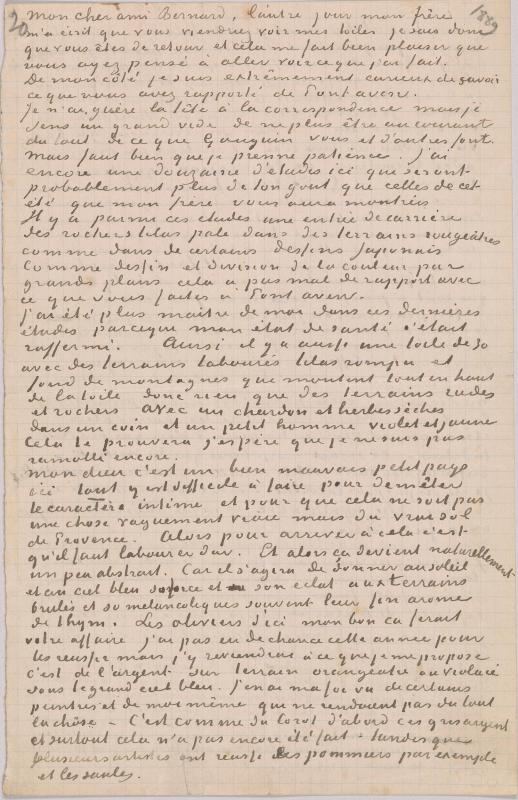 20
1889
mon cher ami Bernard, l'autre jour mon frère
m'a écrit que vous viendrez voir mes toiles je sais donc
que vous êtes de retour et cela me fait bien plaisir que
vous ayez pensé à aller voir ce que j'ai fait.
De mon côté je suis extrêmement curieux de savoir
ce que vous avez rapporté de Pontaven.
Je n'ai guère la tête à la correspondence mais je
sens un grand vide de ne plus être au courant
du tout de ce que Gauguin vous et d'autres font.
Mais faut bien que je prenne patience. J'ai
encore une douzaine d'études ici qui seront
probablement plus de ton gout que celles de cet
été que mon frère vous aura montrées
Il y a parmi ces etudes une entrée de carrière
des rochers lilas pale dans des terrains rougeâtres
comme dans de certains dessins Japonais
Comme dessin et division de la couleur par
grands plans cela a pas mal de rapport avec
ce que vous faites à Pontaven.
j'ai été plus maitre de moi dans ces dernières
études parceque mon état de santé s'était
raffermi. Ainsi il y a aussi une toile de 30
avec des terrains labourés lilas rompu et
fond de montagnes qui montent tout en haut
de la toile donc rien que des terrains rudes
et rochers avec un chardon et herbes sèches
dans un coin et un petit homme violet et jaune
Cela te prouvera j'espère que je ne suis pas
ramolli encore.
Mon dieu c'est un bien mauvais petit pays
ici tout y est difficile à faire pour démêler
le caractère intime et pour que cela ne soit pas
une chose vaguement vraie mais du vrai sol
de Provence. Alors pour arriver à cela c'est
qu'il faut labourer dur. Et alors ça devient naturellement
un peu abstrait. Car il s'agira de donner au soleil
et au ciel bleu sa force et son eclat aux terrains
brulés et si mélancoliques souvent leur fin arome
de thym. Les oliviers d'ici mon bon ca ferait
votre affaire j'ai pas eu de chance cette année pour
les reussir mais j'y reviendrai à ce que je me propose
C'est de l'argent sur terrain orangeatre ou violacé
sous le grand ciel bleu. J'en ai ma foi vu de certains
peintres et de moi même qui ne rendaient pas du tout
la chôse – C'est comme du Corot d'abord ces gris argent
et surtout cela n'a pas encore été fait – tandis que
plusieurs artistes ont reussi les pommiers par exemple
et les saules.